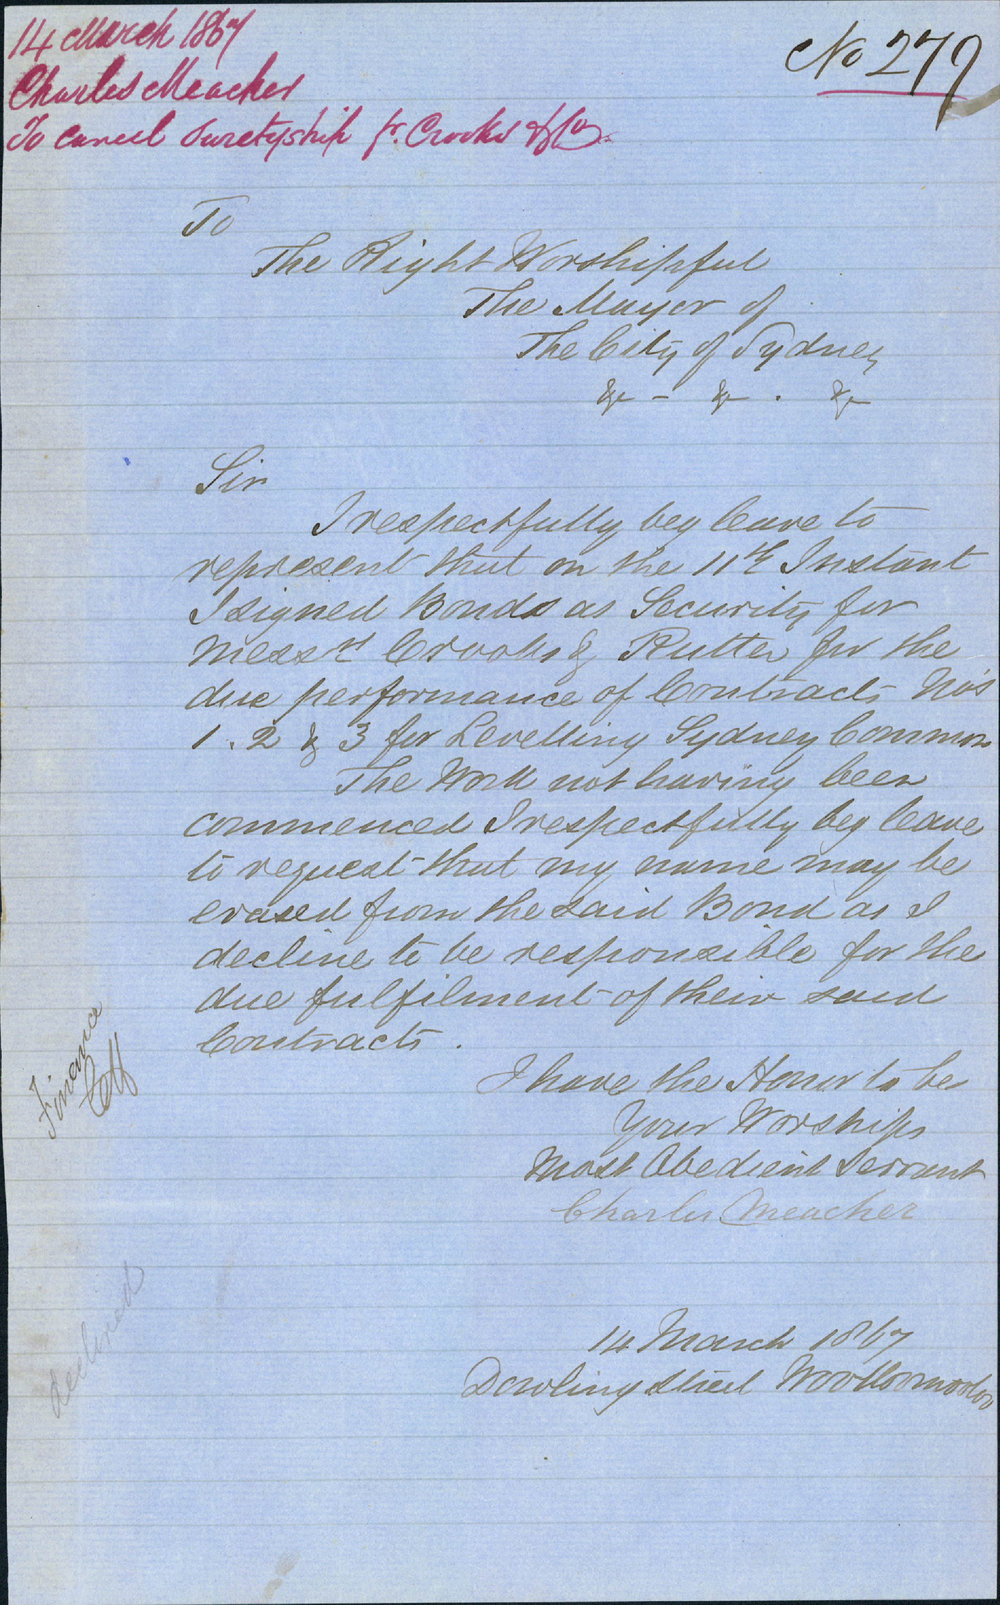 14 March 1867
Charles Meacher
To cancel Suretyship fr. Crooks & Co.
No 277
To
The Right Worshipful
The Mayor of
The City of Sydney
&c - &c . &c
Sir
I respectfully beg leave to
represent that on the 11th Instant
I signed Bonds as Security for
Messrs Crooks & Rutter for the
due performance of Contracts Nos
1. 2 & 3 for Levelling Sydney Common
The Work not having been
commenced I respectfully beg leave
to request that my name may be
erased from the said Bond as I
decline to be responsible for the
due fulfilment of their said
Contracts.
I have the Honor to be
Your Worships
Most Obedient Servant
Charles Meacher
14 March 1867
Dowling Street Woolloomooloo
Finance
declined